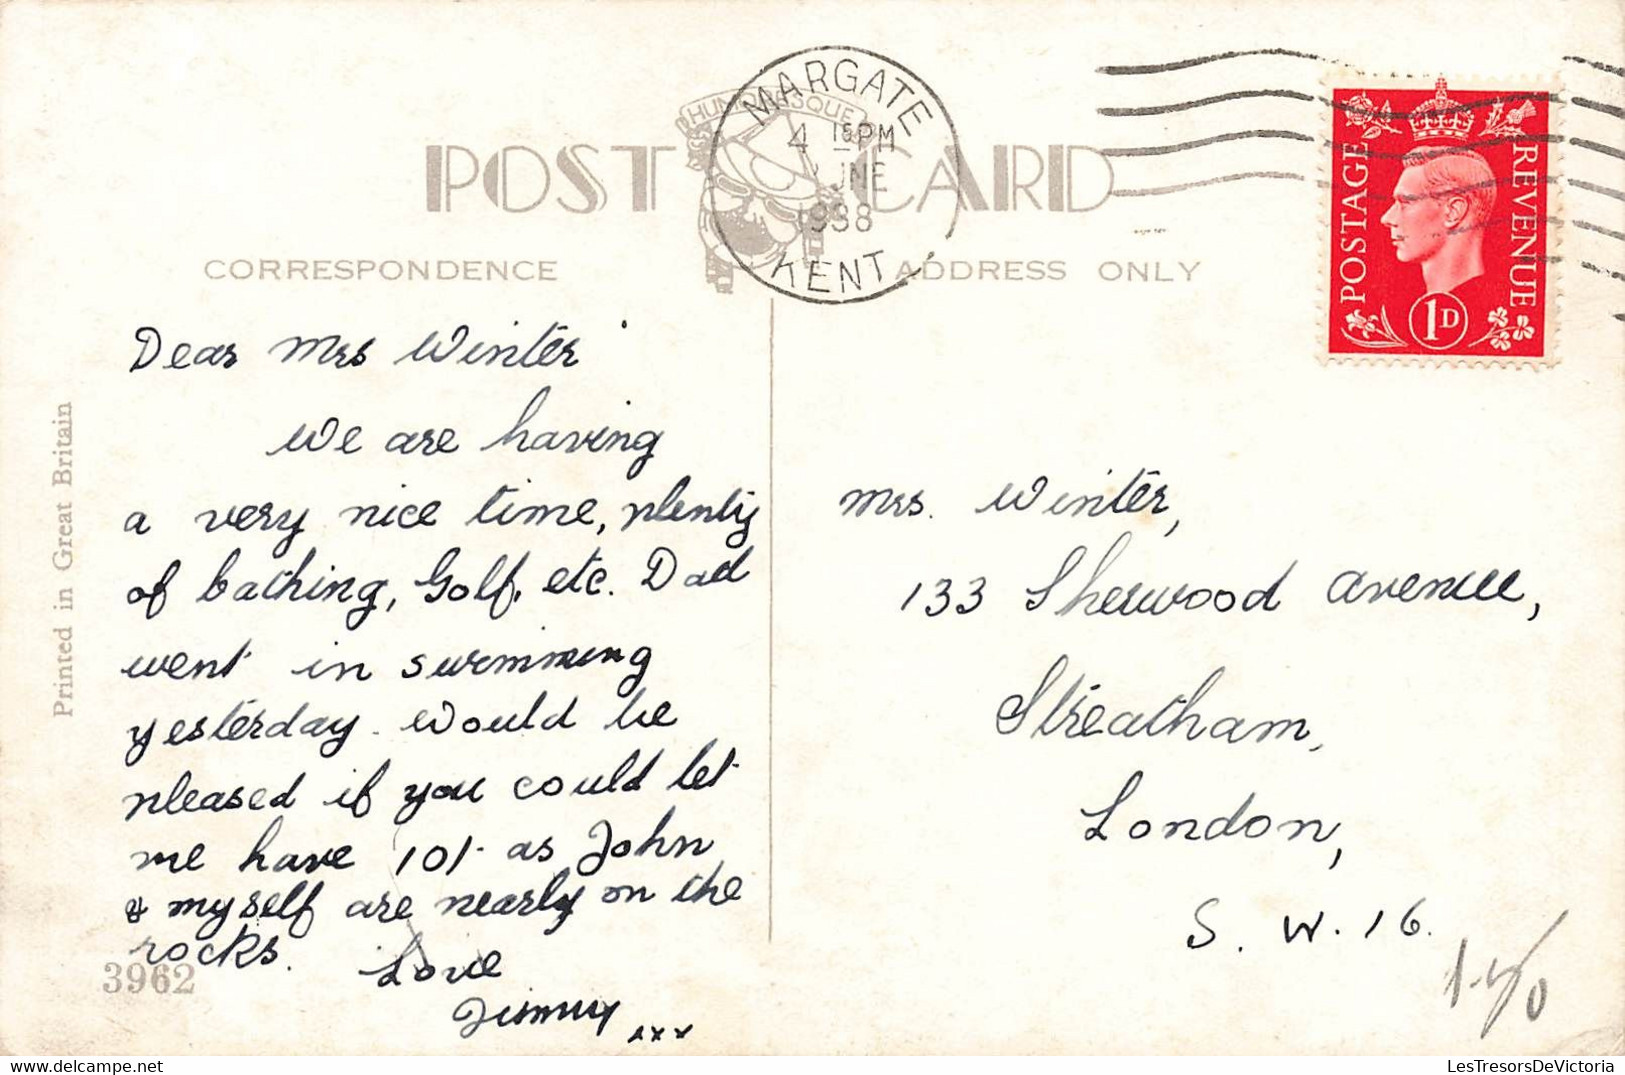 POST CARD
CORRESPONDENCE
ADDRESS ONLY
MARGATE
4 15 PM
UNE
1938
KENT
POSTAGE
REVENUE
1D
Printed in Great Britain
Dear Mrs Winter
We are having
a very nice time, plenty
of bathing, Golf, etc. Dad
went in swimming
yesterday. Would be
pleased if you could let
me have 10/- as John
& myself are nearly on the
rocks.
Love
Jimmy xxx
3962
Mrs. Winter,
133 Sherwood Avenue,
Streatham,
London,
S. W. 16.
LesTresorsDeVictoria